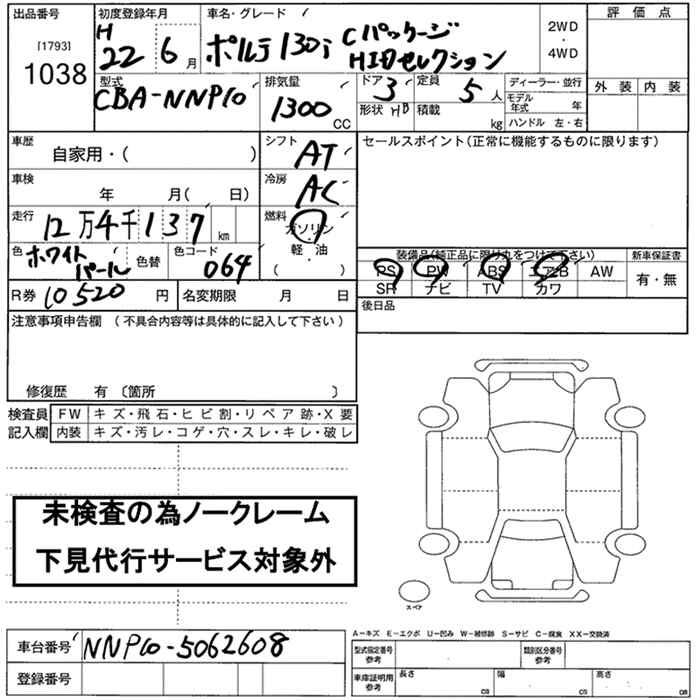 出品番号 初度登録年月 車名・グレード 2WD・4WD 評価点
[1793]
1038
H22 6月 ポルテ 130i Cパッケージ
HIDセレクション
外装 内装
型式 排気量 ドア 定員 ディーラー・並行
CBA-NNP10 1300CC 3 5人 モデル年式 年
形状 HB 積載 kg ハンドル 左・右
車歴 シフト セールスポイント(正常に機能するものに限ります)
自家用・( ) AT
車検 冷房
年 月( 日) AC
走行 燃料
12万4千137km ガソリン・軽・油( )
色 色替 色コード
ホワイトパール 064
装備品(純正品に限り丸をつけて下さい) 新車保証書
PS PW ABS エアB AW 有・無
SR ナビ TV カワ
R券 10520円 名変期限 月 日 後日品
注意事項申告欄 (不具合内容等は具体的に記入して下さい)
修復歴 有 〔箇所 〕
検査員 FW キズ・飛石・ヒビ割・リペア跡・X要
記入欄 内装 キズ・汚レ・コゲ・穴・スレ・キレ・破レ
未検査の為ノークレーム
下見代行サービス対象外
スペア
A-キズ E-エクボ U-凹み W-補修跡 S-サビ C-腐食 XX-交換済
車台番号 NNP10-5062608 型式指定番号 参考 類別区分番号 参考
登録番号 車庫証明用 参考 長さ cm 幅 cm 高さ cm